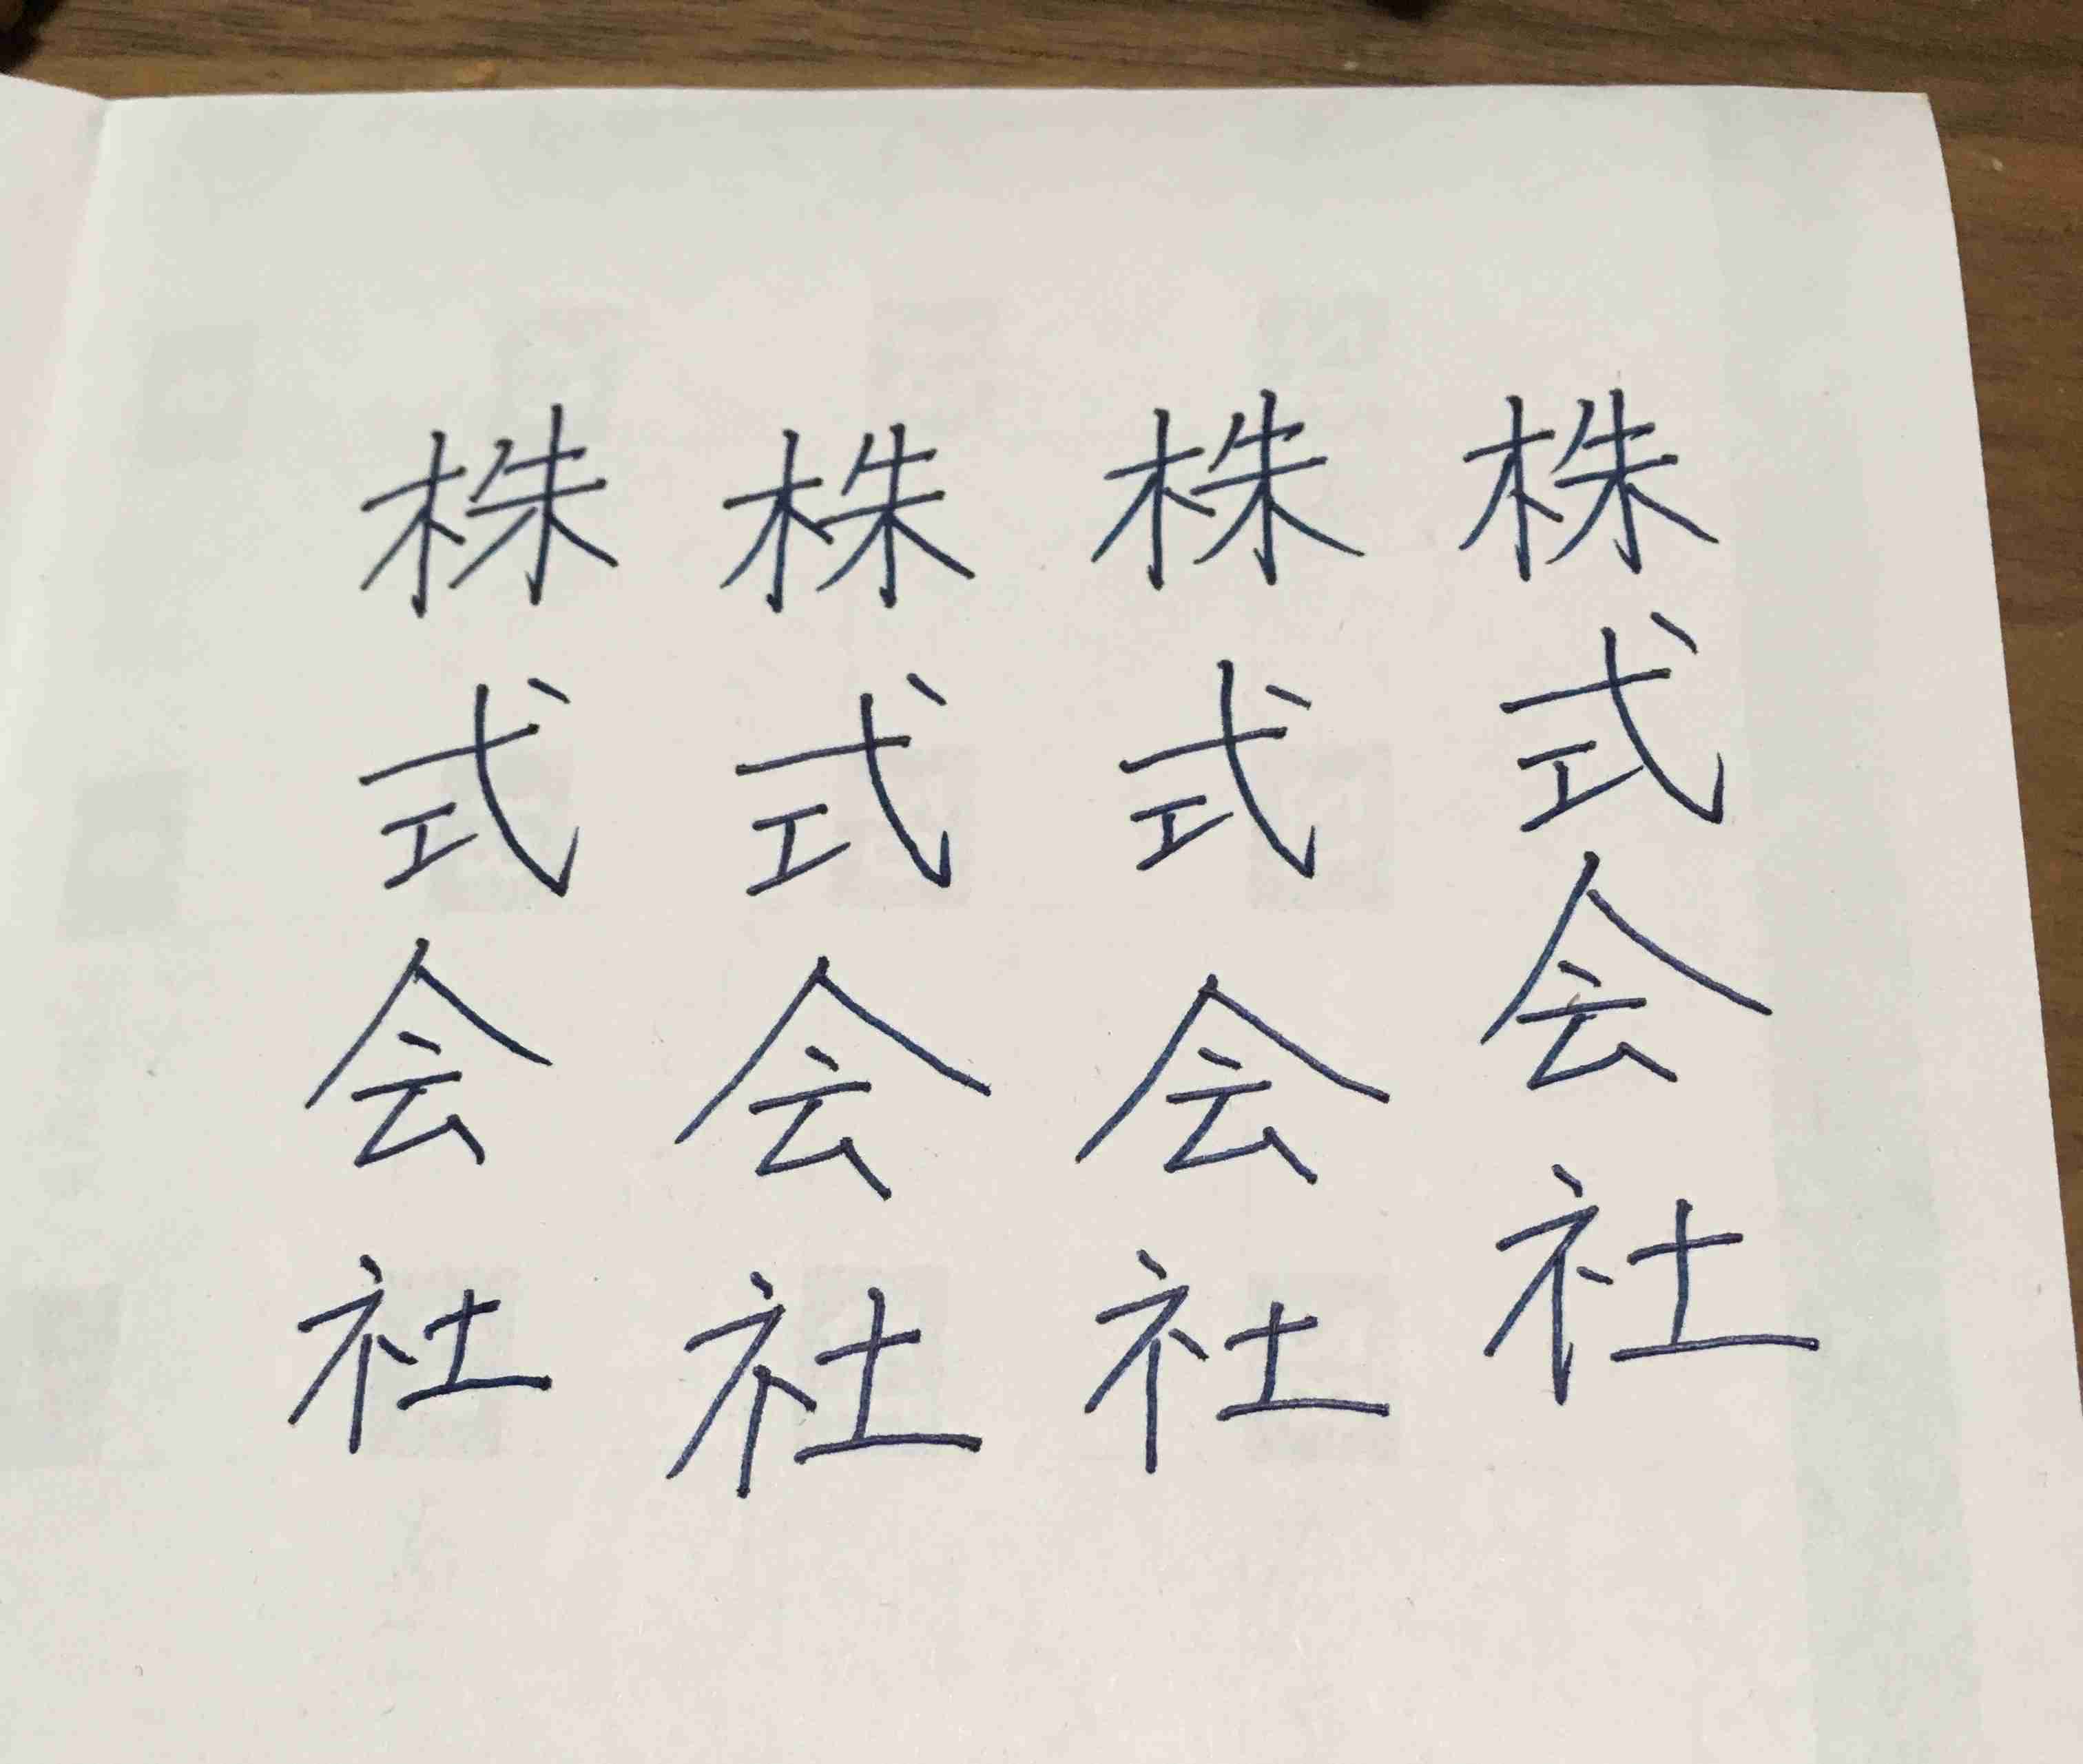 株式会社
株式会社
株式会社
株式会社